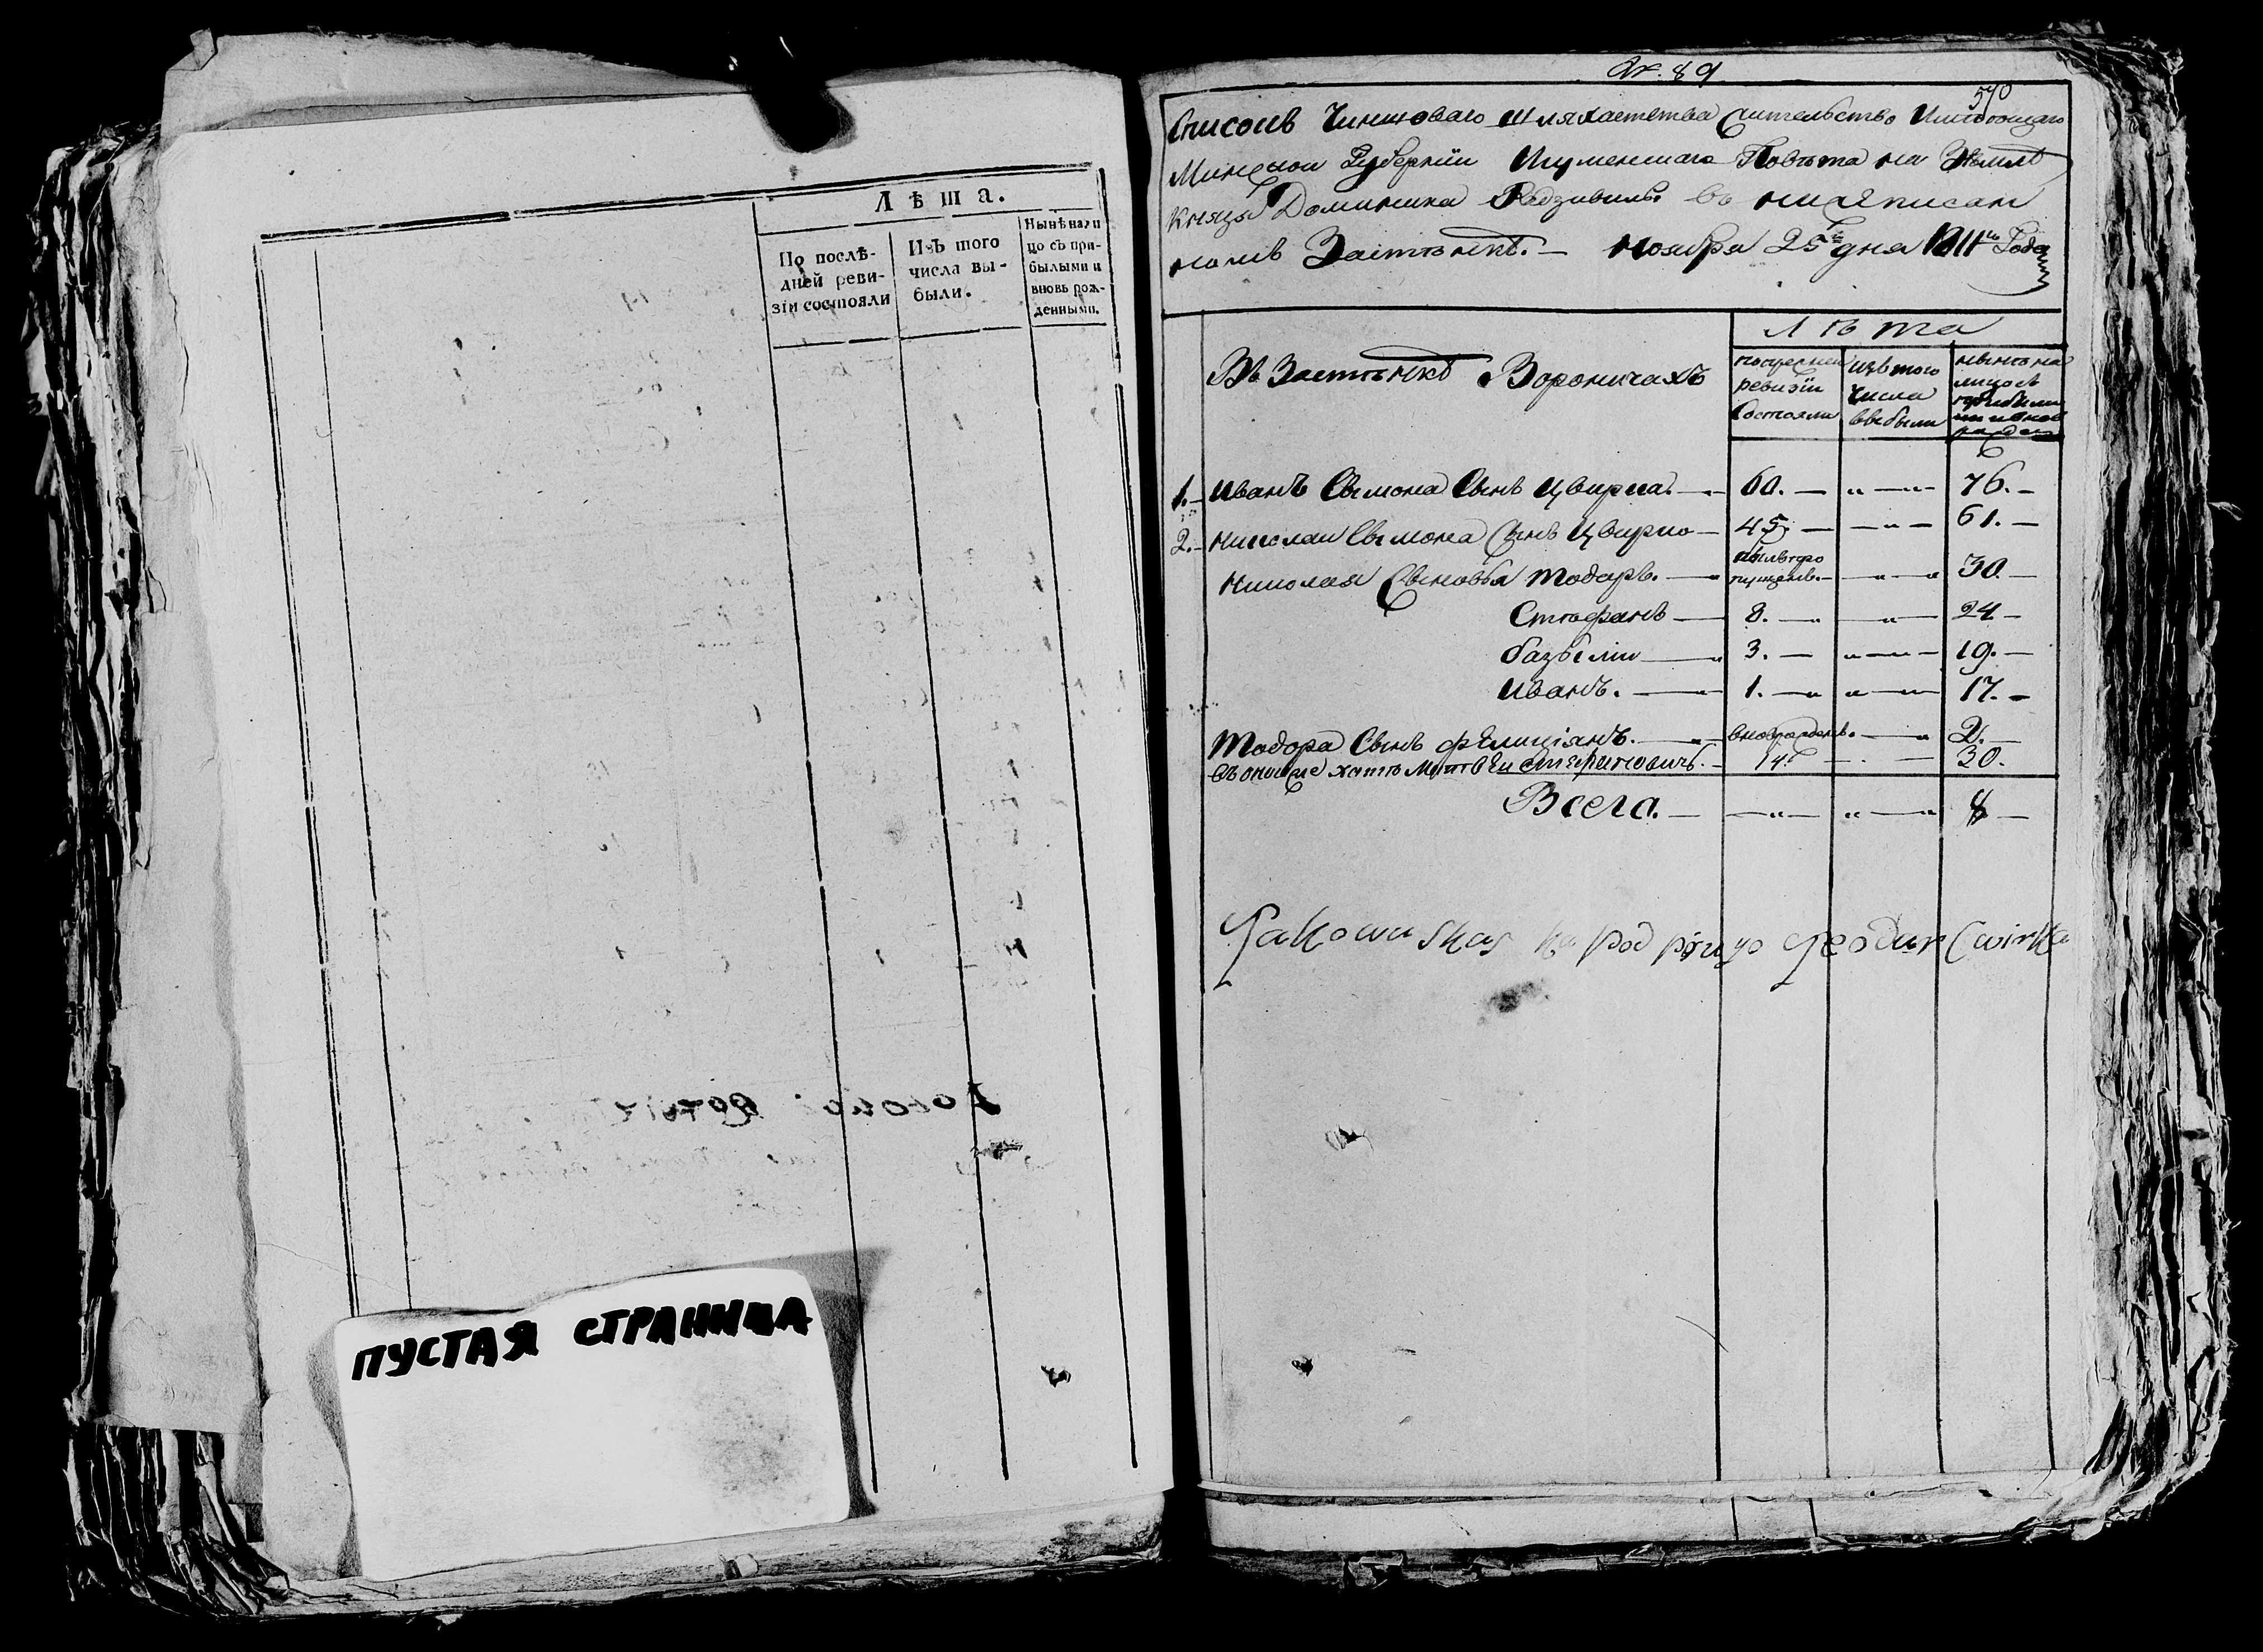 Лѣта.
По послѣ-
дней реви-
зіи состояли
Изъ того
числа вы-
были.
Нынѣ нали
цо съ при-
былыми и
вновь рож-
денными.
ПУСТАЯ СТРАНИЦА
89
570
Списокъ Чиншоваго Шляхастства Жительство Имеющаго
Минской Губерніи Игуменскаго Повѣта на Земле
Князя Доминика Радзивила во нижеписан
номъ Застѣнкѣ. — Ноября 25 дня 1811 Года
Лѣта
Въ Застѣнкѣ Вороничахъ
последней
ревизіи
Состояли
изъ того
Числа
выбыли
нынѣ на
лицо съ
1. Иванъ Сымона Сынъ Цвирка. — 60. — „ — 76. —
2. Николай Сымона Сынъ Цвирко — 45 — „ — 61. —
былъ про
пущенъ.
Николая Сыновья Тодаръ. — „ — 30 —
Стефанъ — 8. — „ — 24 —
базыли — 3. — „ — 19. —
Иванъ. — 1. — „ — 17. —
Тодора Сынъ Фелиціянъ. — вновь рожденъ. — 2. —
Стефановичъ. — 14 — 30.
Всего. — „ — „ — 8 —
pod Cwirka